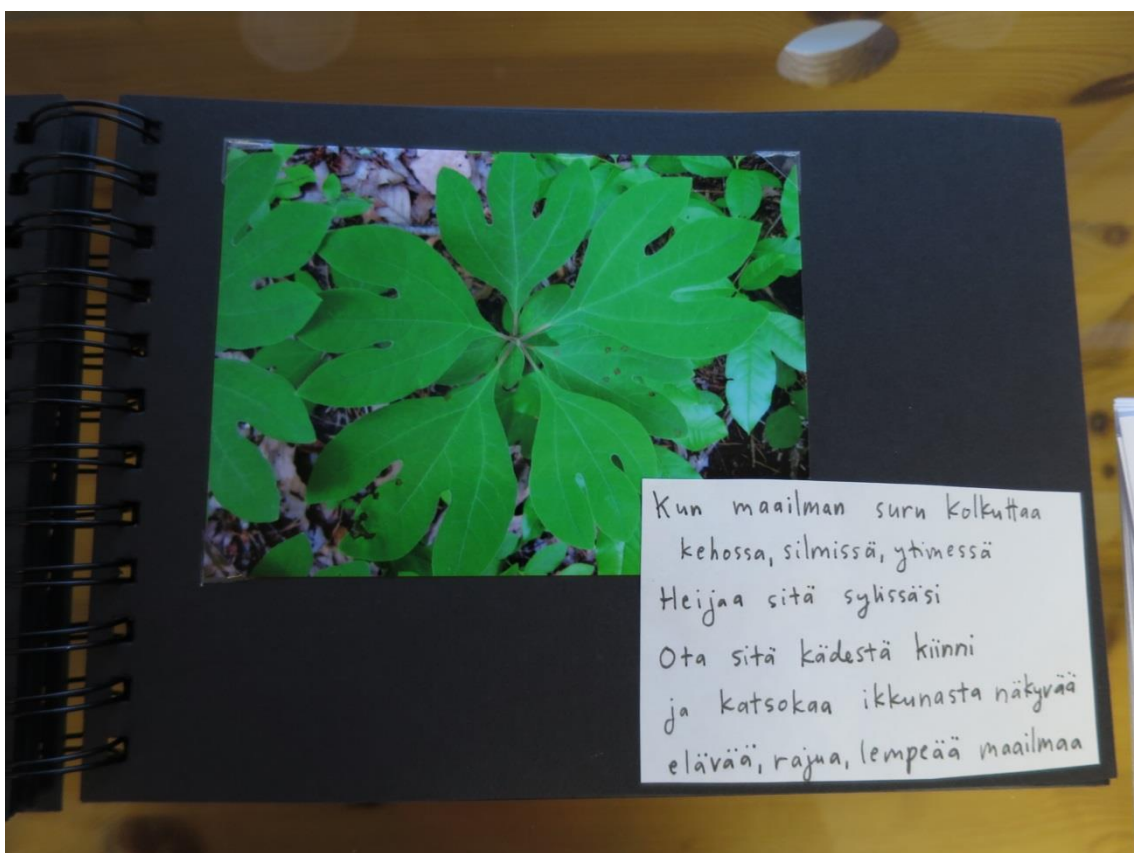 Kun maailman suru kolkuttaa
kehossa, silmissä, ytimessä
Heijaa sitä sylissäsi
Ota sitä kädestä kiinni
ja katsokaa ikkunasta näkyvää
elävää, rajua, lempeää maailmaa